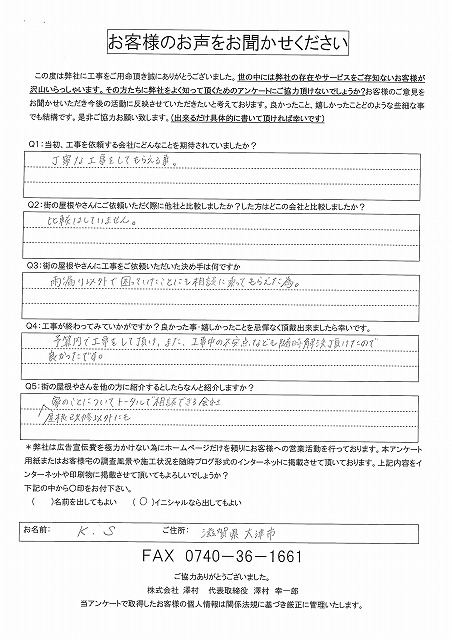 お客様のお声をお聞かせください
この度は弊社に工事をご用命頂き誠にありがとうございました。世の中には弊社の存在やサービスをご存知ないお客様が
沢山いらっしゃいます。その方たちに弊社をよく知って頂くためのアンケートにご協力頂けないでしょうか?お客様のご意見を
お聞かせいただき今後の活動に反映させていただきたいと考えております。良かったこと、嬉しかったことどのような些細な事
でも結構です。是非ご協力お願い致します。(出来るだけ具体的に書いて頂ければ幸いです)
Q1:当初、工事を依頼する会社にどんなことを期待されていましたか?
丁寧な工事をしてもらえる事。
Q2:街の屋根やさんにご依頼いただく際に他社と比較しましたか?した方はどこの会社と比較しましたか?
比較はしていません。
Q3:街の屋根やさんに工事をご依頼いただいた決め手は何ですか
雨漏り以外で困っていたことにも相談に乗ってもらえた為。
Q4:工事が終わってみていかがですか?良かった事・嬉しかったことを忌憚なく頂戴出来ましたら幸いです。
予算内で工事をして頂け、また、工事中の不安点なども随時解決頂けたので
良かったです。
Q5:街の屋根やさんを他の方に紹介するとしたらなんと紹介しますか?
家のことについてトータルで相談できる会社
屋根改修以外にも
*弊社は広告宣伝費を極力かけない為にホームページだけを頼りにお客様への営業活動を行っております。本アンケート
用紙またはお客様宅の調査風景や施工状況を随時ブログ形式のインターネットに掲載させて頂いております。上記内容をイ
ンターネットや印刷物に掲載させて頂いてもよろしいでしょうか?
下記の中から〇印をお付下さい。
( )名前を出してもよい (○)イニシャルなら出してもよい
お名前: K.S ご住所: 滋賀県大津市
FAX 0740-36-1661
ご協力ありがとうございました。
株式会社 澤村 代表取締役 澤村 幸一郎
当アンケートで取得したお客様の個人情報は関係法規に基づき厳正に管理いたします。